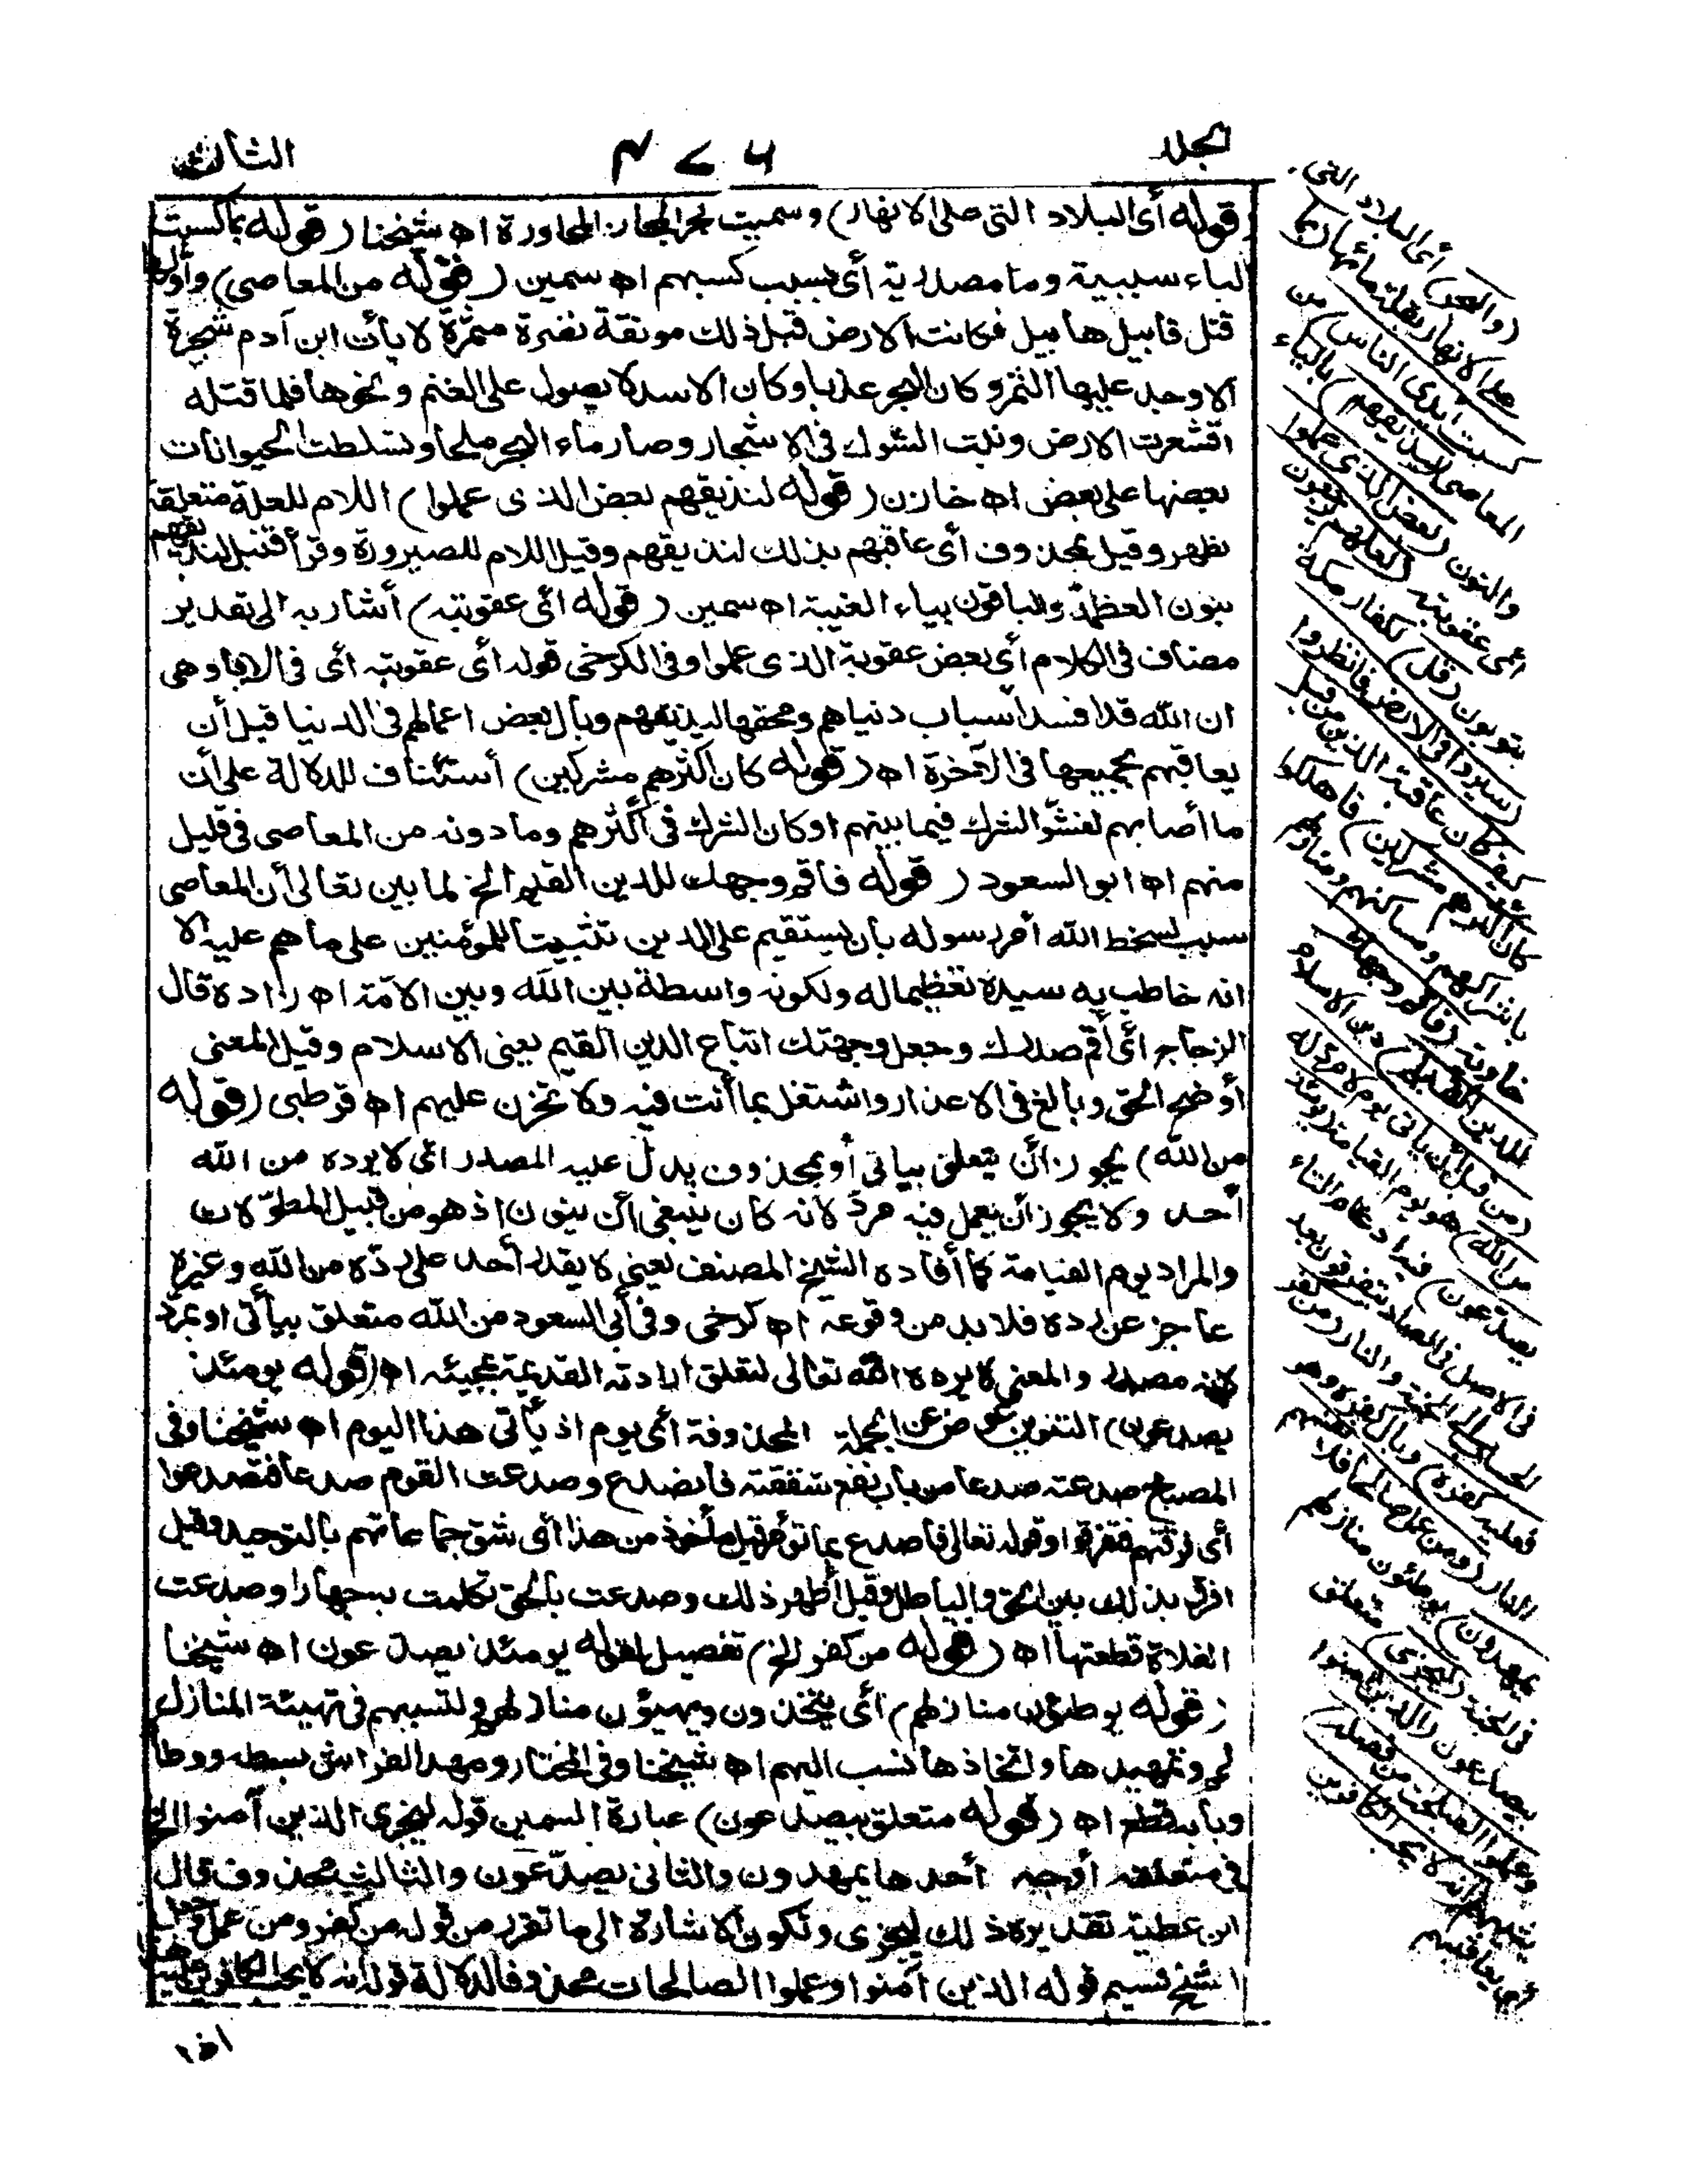 المجلد
الثالث
(قوله أى البلاد التى على الانهار) وسميت بحر المجاورة اه شيخنا (قوله بما كسبت
الباء سببية وما مصدرية أى بسبب كسبهم اه سمين (قوله من المعاصى) وأولها
قتل قابيل هابيل فكانت الارض قبل ذلك مونقة نضرة مثمرة لا يأتى ابن آدم شجرة
الا وجد عليها الثمر وكان البحر عذبا وكان الاسد لا يصول على الغنم ونحوها فلما قتله
اقشعرت الارض ونبت الشوك فى الاشجار وصار ماء البحر ملحا وتسلطت الحيوانات
بعضها على بعض اه خازن (قوله لنذيقهم بعض الذى عملوا) اللام للعلة متعلقة
بظهر وقيل بمحذوف أى عاقبهم بذلك لنذيقهم وقيل اللام للصيرورة وقرأ قنبل لنذيقهم
بنون العظمة والباقون بياء الغيبة اه سمين (قوله أى عقوبته) أشار به الى تقدير
مضاف فى الكلام أى بعض عقوبة الذى عملوا وفى الكرخى قوله أى عقوبته أى فى الدنيا وهى
ان الله قد افسد أسباب دنياهم ومحقها ليذيقهم وبال بعض اعمالهم فى الدنيا قبل أن
يعاقبهم بجميعها فى الآخرة اه (قوله كان أكثرهم مشركين) أستئناف للدلالة على أن
ما أصابهم لفشوّ الشرك فيما بينهم او كان الشرك فى أكثرهم وما دونه من المعاصى فى قليل
منهم اه ابو السعود (قوله فاقم وجهك للدين القيم الخ لما بين تعالى أن المعاصى
سبب لسخط الله أمر رسوله بأن يستقيم على الدين تثبيتا للمؤمنين على ما هم عليه الا
انه خاطب به سيدهم تعظيما له ولكونه واسطة بين الله وبين الامّة اه زاده قال
الزجاج أى أقم صدرك وجعل وجهتك اتباع الدين القيم يعنى الاسلام وقيل المعنى
أوضح الحق وبالغ فى الاعذار واشتغل بما أنت فيه ولا تحزن عليهم اه قرطبى (قوله
من الله) يجوز أن يتعلق بيأتى أو بمحذوف يدل عليه المصدر اى لا يرده من الله
أحد ولا يجوز أن يعمل فيه مردّ لانه كان ينبغى أن ينون اذ هو من قبيل المطوّلات
والمراد يوم القيامة كما أفاده الشيخ المصنف يعنى لا يقدر أحد على ردّه من الله وغيره
عاجز عن رده فلا بد من وقوعه اه كرخى وفى أبى السعود من الله متعلق بيأتى او بمردّ
لانه مصدر والمعنى لا يرده الله تعالى لتعلق ارادته القديمة بمجيئه اه (قوله يومئذ
يصدعون) التنوين عوض عن الجملة المحذوفة أى يوم اذ يأتى هذا اليوم اه شيخنا وفى
المصباح صدعته صدعا من باب نفع شققته فانصدع وصدعت القوم صدعا فتصدعوا
أى فرقتهم فتفرقوا وقوله تعالى فاصدع بما تؤمر قيل مأخوذ من هذا أى شق جماعاتهم بالتوحيد وقيل
افرق بذلك بين الحق والباطل وقيل أظهر ذلك وصدعت بالحق تكلمت به جهارا وصدعت
الفلاة قطعتها اه (قوله من كفر الخ) تفصيل لقوله يومئذ يصدعون اه شيخنا
(قوله يوطئون منازلهم) أى يتخذون ويهيئون منازلهم ولتسببهم فى تهيئة المنازل
لهم وتمهيدها واتخاذها نسب اليهم اه شيخنا وفى المختار ومهد الفراش بسطه ووطأه
وبابه قطع اه (قوله متعلق بيصدعون) عبارة السمين قوله ليجزى الذين آمنوا الخ
فى متعلقه أوجه أحدها يمهدون والثانى يصدّعون والثالث محذوف قال
ابن عطية تقديره ذلك ليجزى وتكون الاشارة الى ما تقرر من قوله من كفر ومن عمل وجعل
الشيخ قسيم قوله الذين آمنوا وعملوا الصالحات محذوفا لدلالة قوله انه لا يحب الكافرين عليه
(والبحر) أى البلاد التى
على الانهار بقلة مائها (بما
كسبت أيدى الناس) من
المعاصى (ليذيقهم) بالياء
والنون (بعض الذى عملوا)
أى عقوبته (لعلهم يرجعون)
يتوبون (قل) لكفار مكة
(سيروا فى الارض فانظروا
كيف كان عاقبة الذين من قبل
كان أكثرهم مشركين) فاهلكوا
باشراكهم ومساكنهم ومنازلهم
خاوية (فاقم وجهك
للدين القيم) دين الاسلام
(من قبل أن يأتى يوم لا مرد له
من الله) هو يوم القيامة (يومئذ
يصدعون) فيه ادغام التاء
فى الاصل فى الصاد يتفرقون بعد
الحساب الى الجنة والنار (من كفر
فعليه كفره) وبال كفره وهو
النار (ومن عمل صالحا فلانفسهم
يمهدون) يوطئون منازلهم
فى الجنة (ليجزى) متعلق
بيصدعون (الذين آمنوا
وعملوا الصالحات من فضله)
يثيبهم (انه لا يحب الكافرين)
أى يعاقبهم